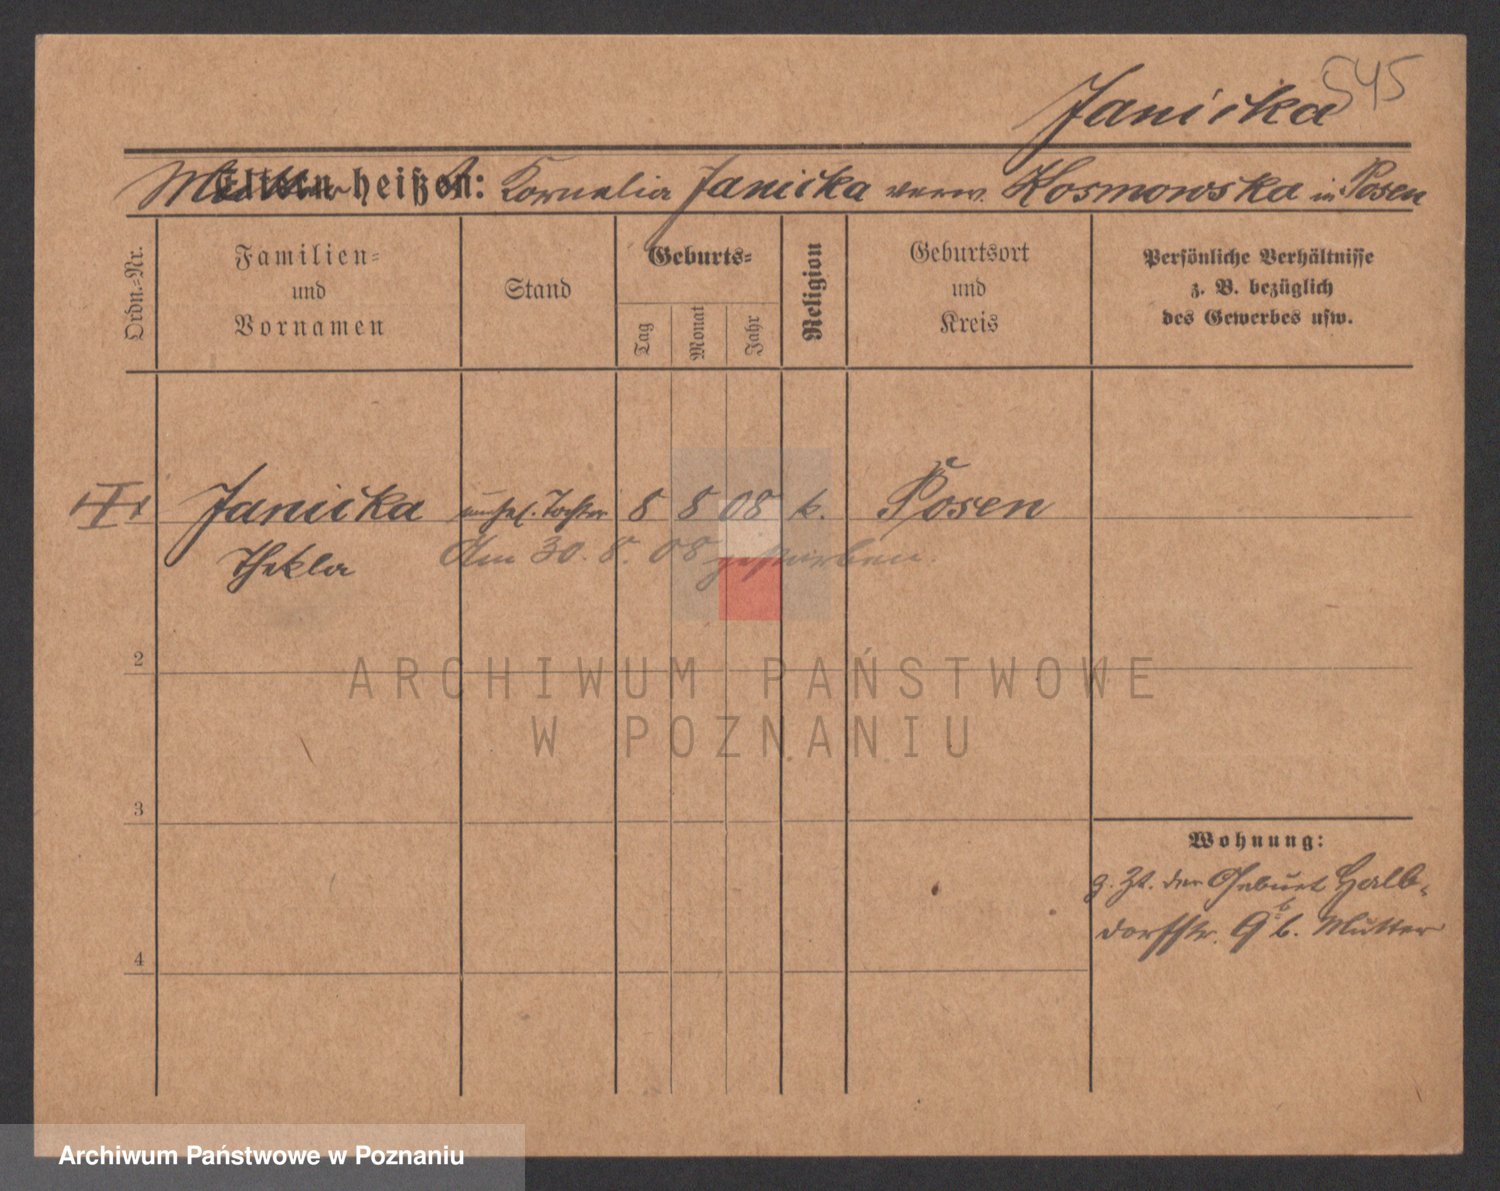 545
Janicka
Mutter heißt: Kornelia Janicka verw. Kosmowska in Posen
Ordn.-Nr.
Familien-
und
Vornamen
Stand
Geburts-
Tag
Monat
Jahr
Religion
Geburtsort
und
Kreis
Persönliche Verhältnisse
z. B. bezüglich
des Gewerbes usw.
Janicka unehel. Tochter 8 8 08 k. Posen
Thekla
Am 30. 8. 08 gestorben.
2
3
4
Wohnung:
z. Zt. der Geburt Halb-
dorfstr. 9 b. Mutter
ARCHIWUM PAŃSTWOWE
W POZNANIU
Archiwum Państwowe w Poznaniu